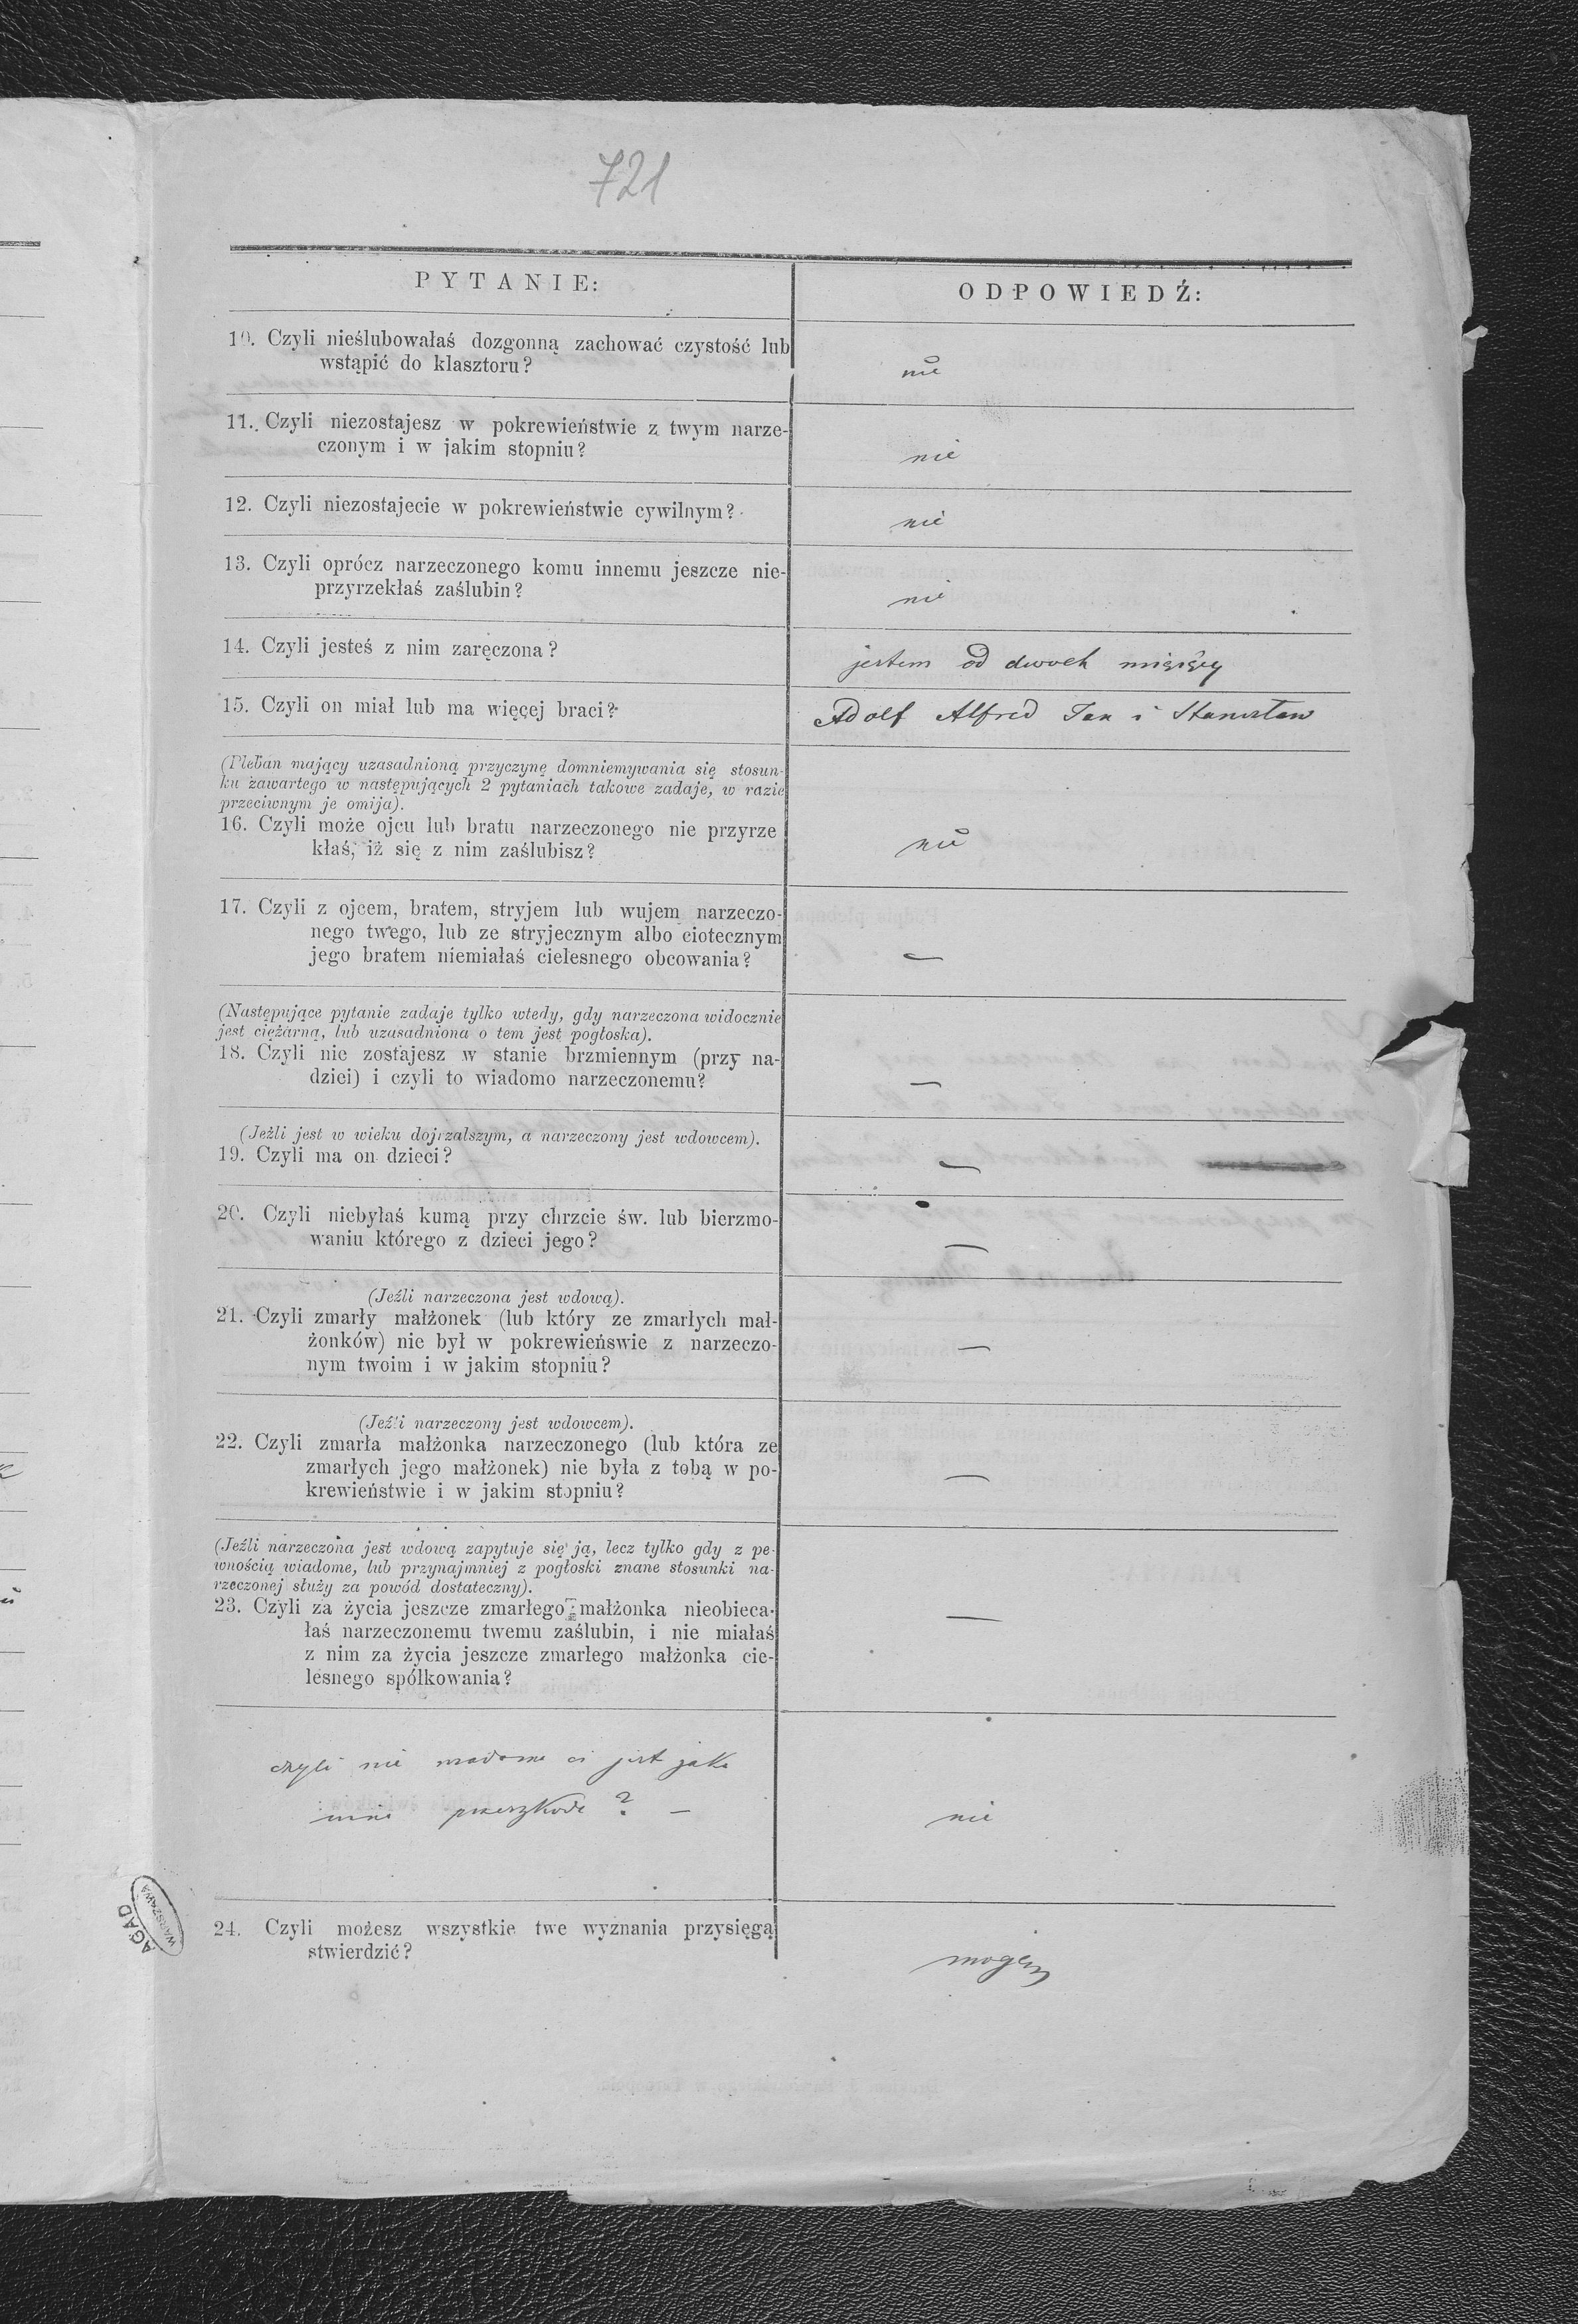 721
PYTANIE:
ODPOWIEDŹ:
10. Czyli nieślubowałaś dozgonną zachować czystość lub
wstąpić do klasztoru?
nie
11. Czyli niezostajesz w pokrewieństwie z twym narze-
czonym i w jakim stopniu?
nie
12. Czyli niezostajecie w pokrewieństwie cywilnym?
nie
13. Czyli oprócz narzeczonego komu innemu jeszcze nie-
przyrzekłaś zaślubin?
nie
14. Czyli jesteś z nim zaręczona?
jestem od dwoch misięcy
15. Czyli on miał lub ma więcej braci?
Adolf Alfred Jan i Stanisław
(Pleban mający uzasadnioną przyczynę domniemywania się stosun-
ku zawartego w następujących 2 pytaniach takowe zadaje, w razie
przeciwnym je omija).
16. Czyli może ojcu lub bratu narzeczonego nie przyrze
kłaś, iż się z nim zaślubisz?
nie
17. Czyli z ojcem, bratem, stryjem lub wujem narzeczo-
nego twego, lub ze stryjecznym albo ciotecznym
jego bratem niemiałaś cielesnego obcowania?
—
(Następujące pytanie zadaje tylko wtedy, gdy narzeczona widocznie
jest ciężarną, lub uzasadniona o tem jest pogłoska).
18. Czyli nie zostajesz w stanie brzmiennym (przy na-
dziei) i czyli to wiadomo narzeczonemu?
—
(Jeżli jest w wieku dojrzalszym, a narzeczony jest wdowcem).
19. Czyli ma on dzieci?
—
20. Czyli niebyłaś kumą przy chrzcie św. lub bierzmo-
waniu którego z dzieci jego?
—
(Jeźli narzeczona jest wdową).
21. Czyli zmarły małżonek (lub który ze zmarłych mał-
żonków) nie był w pokrewieńswie z narzeczo-
nym twoim i w jakim stopniu?
—
(Jeźli narzeczony jest wdowcem).
22. Czyli zmarła małżonka narzeczonego (lub która ze
zmarłych jego małżonek) nie była z tobą w po-
krewieństwie i w jakim stopniu?
—
(Jeźli narzeczona jest wdową zapytuje się ją, lecz tylko gdy z pe-
wnością wiadome, lub przynajmniej z pogłoski znane stosunki na-
rzeczonej służy za powód dostateczny).
23. Czyli za życia jeszcze zmarłego małżonka nieobieca-
łaś narzeczonemu twemu zaślubin, i nie miałaś
z nim za życia jeszcze zmarłego małżonka cie-
lesnego spółkowania?
—
czyli nie wiadome ci jest jaka
inna przeszkoda ? —
nie
24. Czyli możesz wszystkie twe wyznania przysięgą
stwierdzić?
mogem
AGAD
WARSZAWA